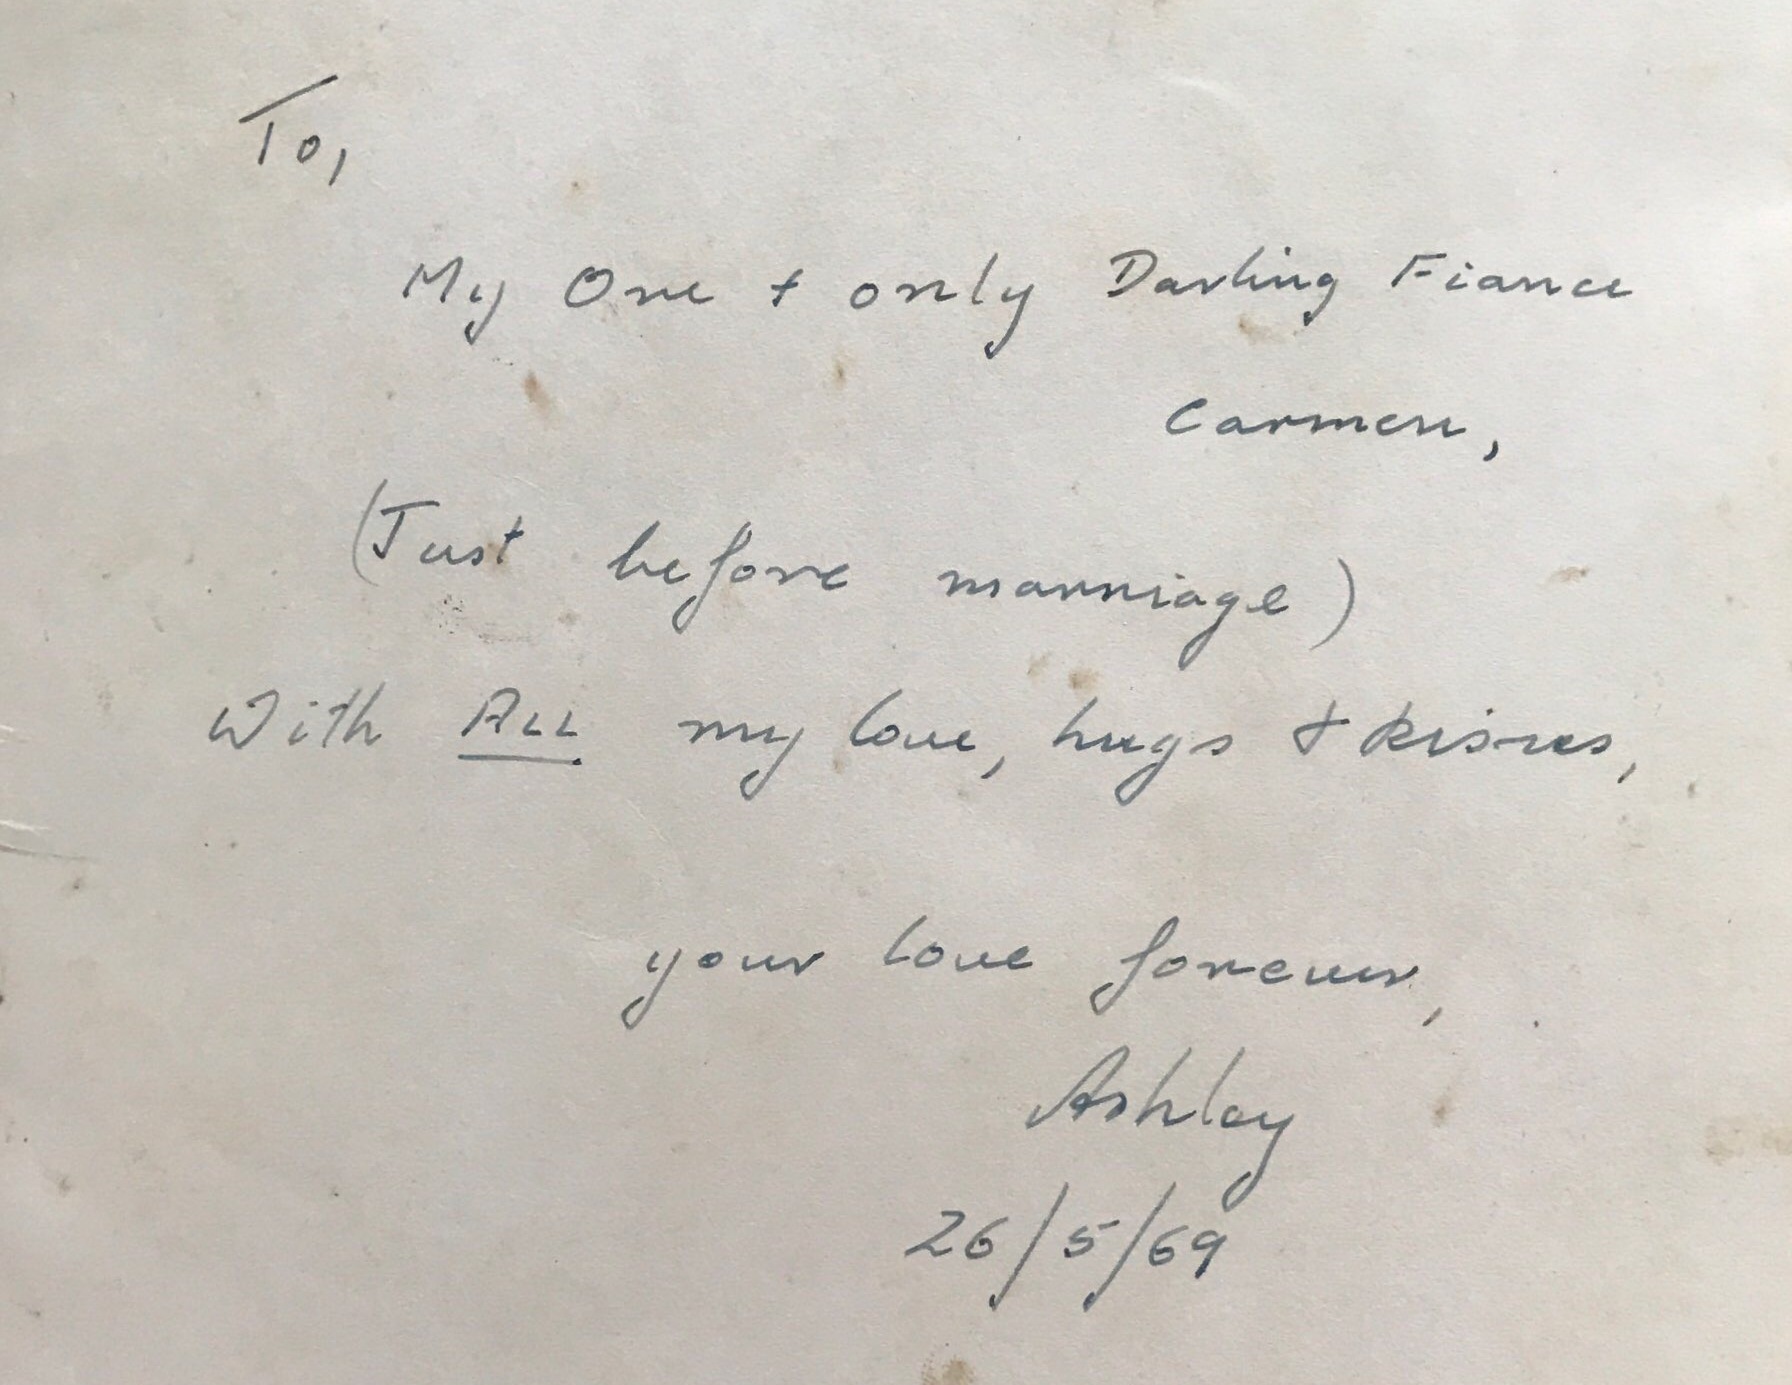 To,
My One + only Darling Fiance
Carmen,
(Just before marriage)
With ALL my love, hugs + kisses,
your love forever,
Ashley
26/5/69